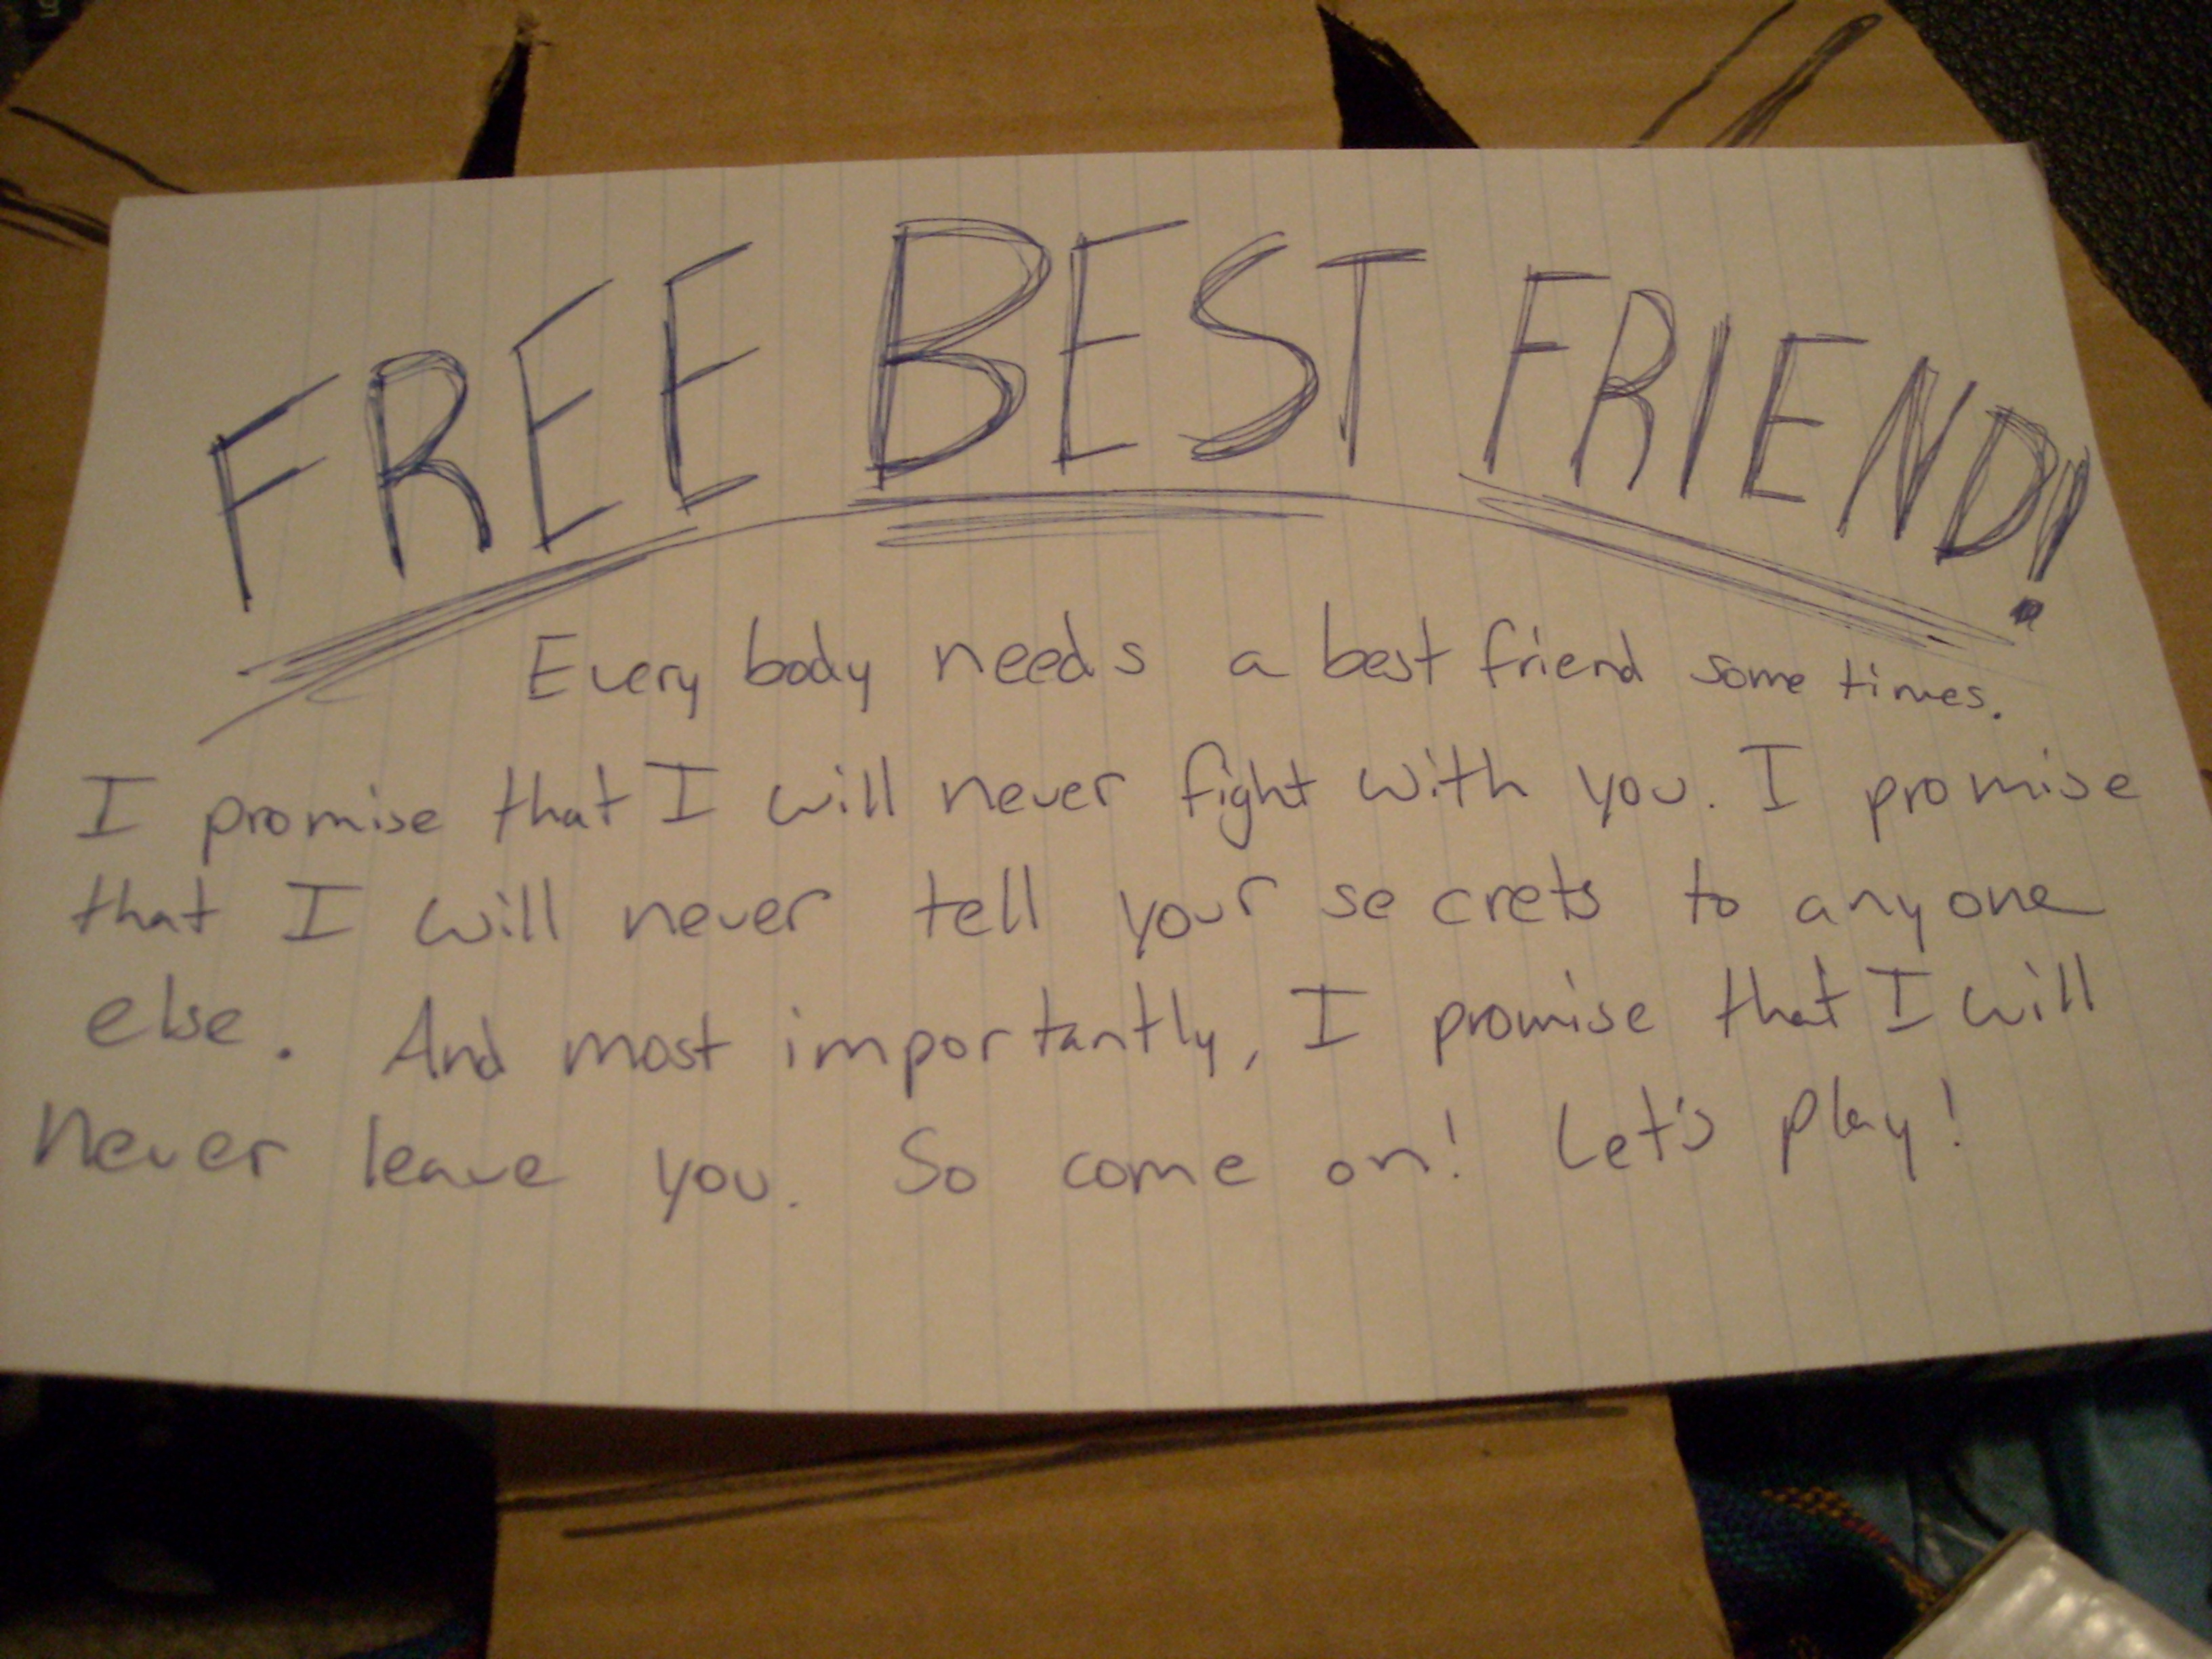 FREE BEST FRIEND!
Every body needs a best friend some times.
I promise that I will never fight with you. I promise
that I will never tell your secrets to anyone
else. And most importantly, I promise that I will
Never leave you. So come on! Let's play!